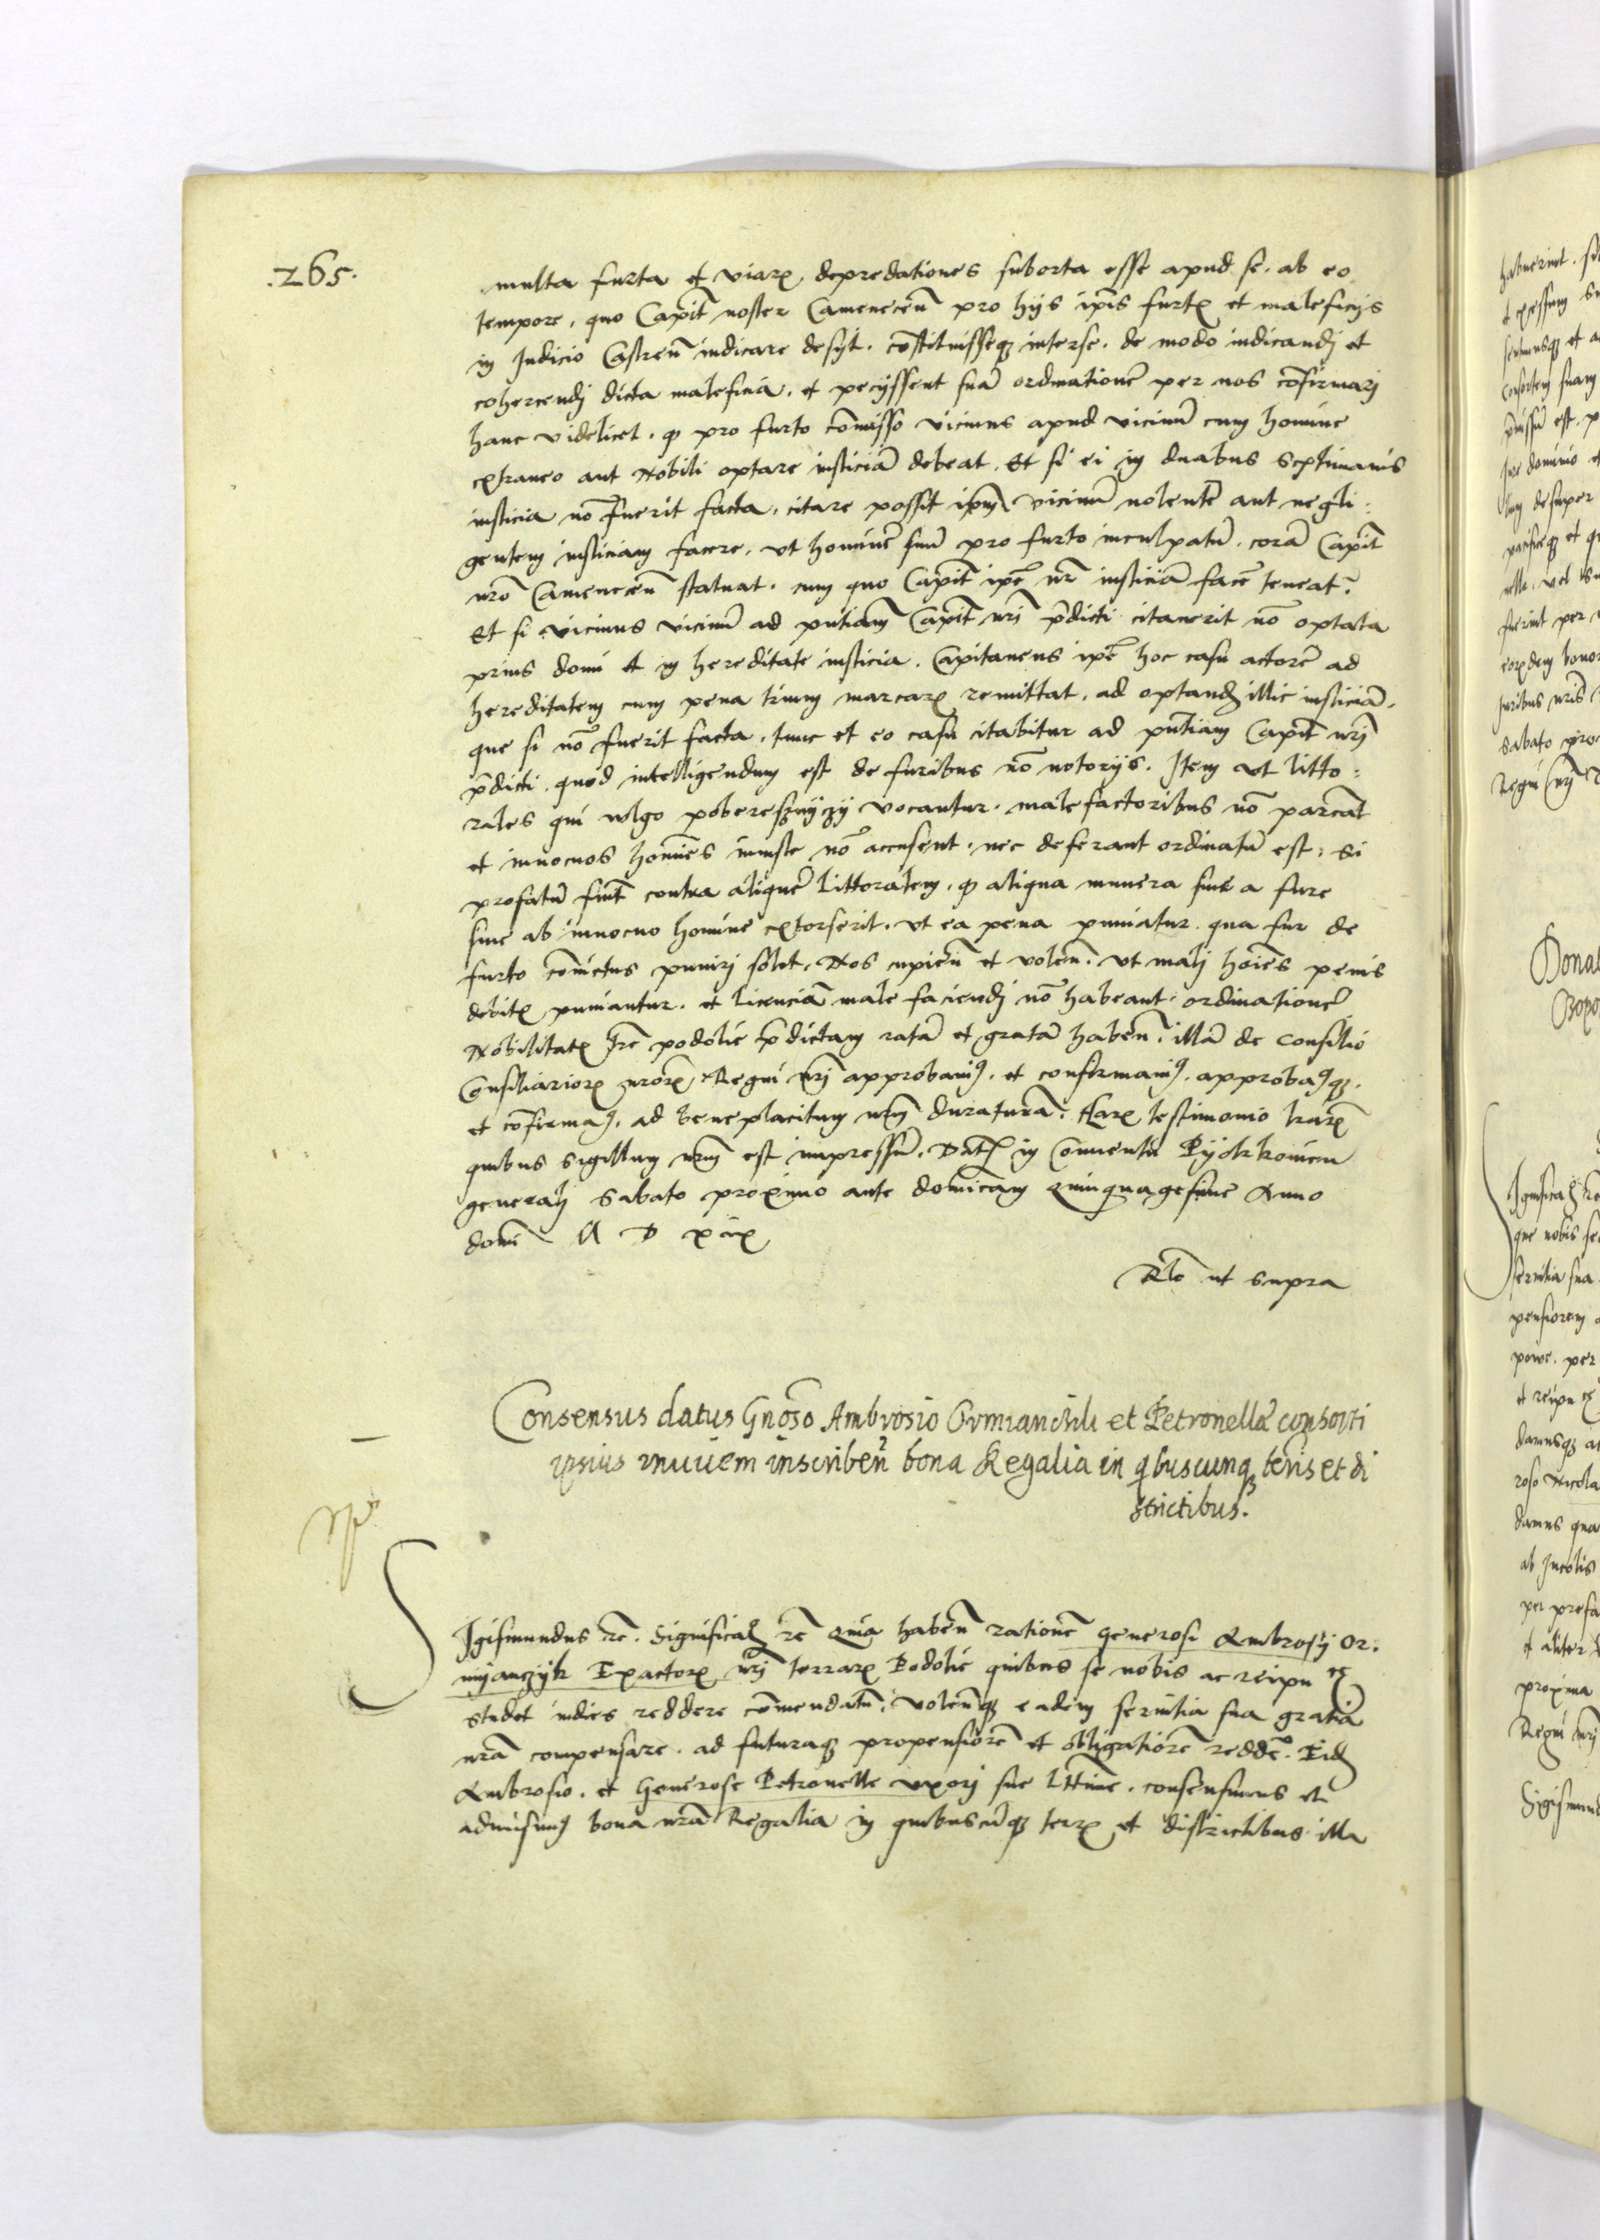 .265.
multa furta et viarꝝ depredationes suborta esse apud se. ab eo
tempore, quo Capit̃ noster Camenecen̄ pro hijs ip̄is furtꝭ et maleficijs
in Judicio Castren̄ iudicare desijt. cōstituisseqꝫ interse. de modo iudicandj et
cohercendj dicta maleficia. et pecijssent suā ordinationē per nos cōfirmarj
hanc videlicet. qꝫ pro furto cōmisso vicinus apud vicinū cum homine
extraneo aut Nobili optare iusticiā debeat. Et si ei in duabus septimanis
iusticia nō fuerit facta. citare possit ip̄m vicinū nolentē aut negli:
gentem iusticiam facere. vt hominē suū pro furto inculpatū. corā Capit̃
nr̄o Camenecen̄ statuat. cum quo Capit̃ ip̄e nr̄ iusticiā facē teneat̃.
Et si vicinus vicinū ad pn̄tiam Capit̃ nr̄j p̄dicti citauerit nō optata
prius domi et in hereditate iusticia. Capitaneus ip̄e hoc casu actorē ad
hereditatem cum pena trium marcarꝝ remittat. ad optandā illic iusticiā.
que si nō fuerit facta. tunc et eo casu citabitur ad pn̄tiam Capit̃ nr̄j
p̄dicti. quod intelligendum est de furibus nō notorijs. Item vt litto:
rales qui vulgo pobereszniczy vocantur. malefactoribus nō parcāt
et innocuos homīes iniuste nō accusent. nec deferant ordinatū est. Si
probatū fuīt contra aliquē littoralem. qꝫ aliqua munera siue a fure
siue ab innocuo homine extorserit. vt ea pena puniatur qua fur de
furto cōuictus punirj solet. Nos cupien̄ et volen̄. vt malj hoīes penis
debitꝭ puniantur. et licenciā male faciendj nō habeant. ordinationē
Nobilitatꝭ tr̄e podolie p̄dictam ratā et gratā haben̄. illā de consilio
Consiliariorꝝ nr̄orꝝ Regni nr̄j approbauimꝰ. et confirmauimꝰ. approbamꝰqꝫ.
et cōfirmamꝰ. ad beneplacitum nr̄m duraturā. Harꝝ testimonio lr̄arꝝ
quibus sigillum nr̄m est impressū. Datꝭ in Conuentu Pyotrkouien̄
generalj Sabato proximo ante dominicam Quinquagesime Anno
domī M D xix
Rl̄o ut supra
Consensus datus Gnōso Ambrosio Ormianchik et Petronellæ consorti
ipsius inuicem inscriben̄ bona Regalia in qbuscunqꝫ terris et di
strictibus.
Sigismundus rc̄. Significamꝰ rc̄ Quia haben̄ rationē generosi Ambrosij Or.
mijanczyk Exactorꝭ nr̄j terrarꝝ Podolie quibus se nobis ac reipu ce
studet indies reddere cōmendatū. volen̄qꝫ eadem seruitia sua gratia
nr̄a compensare. ad futuraqꝫ propensiorē et obligatiorē reddē. Eidē
Ambrosio. et Generose Petronelle vxorj sue l̄ttime. consensimus et
admisimꝰ bona nr̄a Regalia in quibuscūqꝫ terrꝭ et districtibus illa